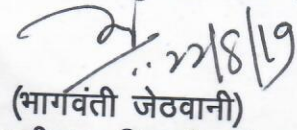 22/8/19
(भागवंती जेठवानी)